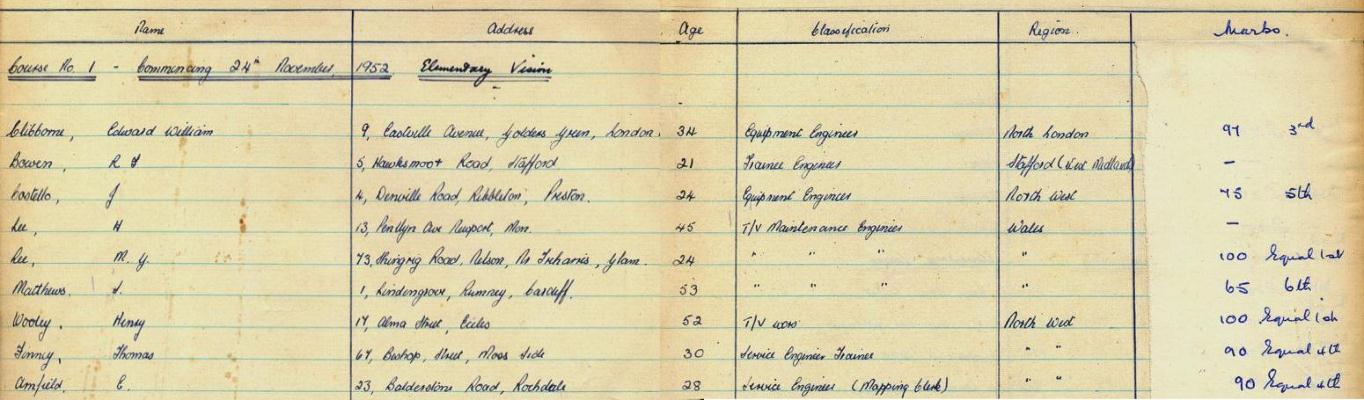 Name Address Age Classification Region. Marks.
Course No. 1 - Commencing 24th November, 1952 Elementary Vision
Clibborne, Edward William 9, Eastville Avenue, Golders Green, London. 34 Equipment Engineer North London 97 3rd
Bowen, R 5, Hawksmoor Road, Stafford 21 Trainee Engineer Stafford (West Midland) -
Costello, J 4, Denville Road, Ribbleton, Preston. 24 Equipment Engineer North West 75 5th
Lee, H 13, Pentlyn Ave Newport, Mon. 45 T/V Maintenance Engineer Wales -
Lee, M. Y. 73, Road, Nelson, Nr Treharris, Glam. 24 " " " " 100 Equal 1st
Matthews. 1, Lindengrove, Rumney, Cardiff. 53 " " " " 65 6th
Wooley. Henry 17, Alma Street, Eccles 52 T/V North West 100 Equal 1st
Finney, Thomas 67, Bishop, Street, Moss Side 30 Service Engineer Trainee " " 90 Equal 4th
Amfield. E. 23, Balderstone Road, Rochdale 28 Service Engineer (Mapping Clerk) " " 90 Equal 4th